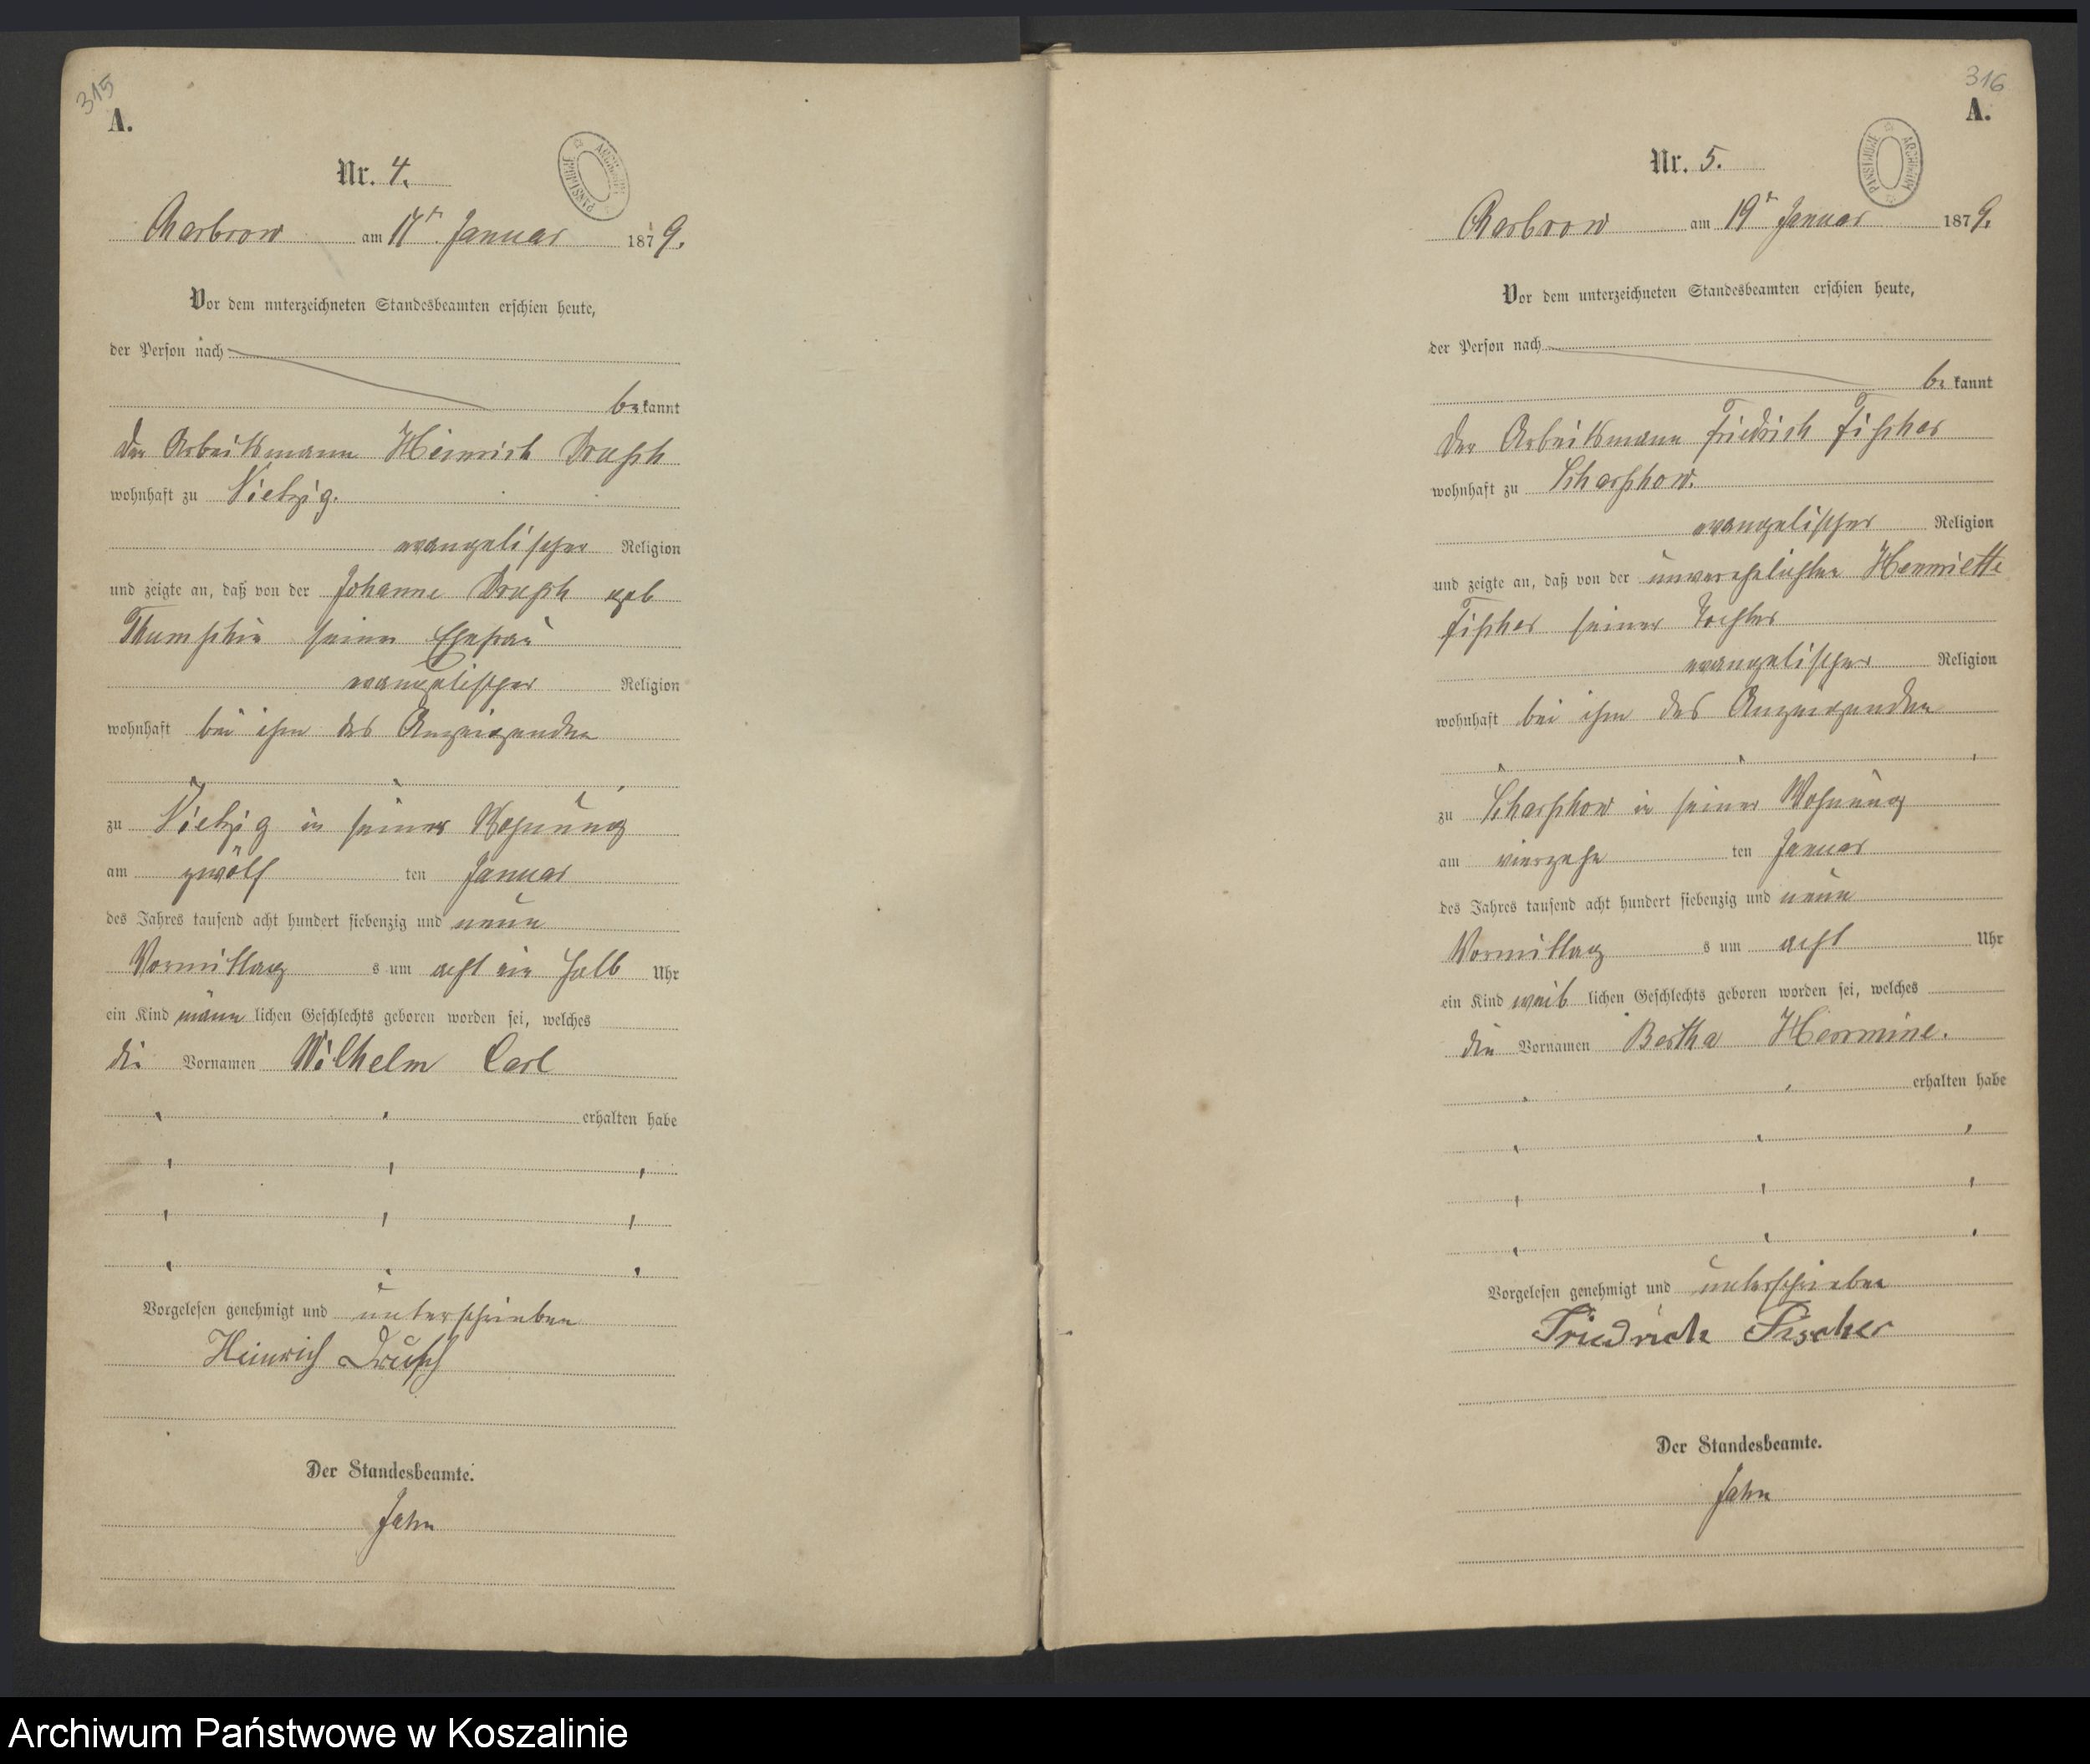 315
A.
Nr. 4.
ARCHIWUM PAŃSTWOWE
Charbrow am 17t Januar 1879.
Vor dem unterzeichneten Standesbeamten erschien heute,
der Person nach
bekannt
der Arbeitsmann Heinrich Drusch
wohnhaft zu Vietzig.
evangelischer Religion
und zeigte an, daß von der Johanne Drusch geb
seiner Ehefrau
evangelischer Religion
wohnhaft bei ihm des Anzeigenden
zu Vietzig in seiner Wohnung
am zwölf ten Januar
des Jahres tausend acht hundert siebenzig und neun
Vormittag s um acht ein halb Uhr
ein Kind männ lichen Geschlechts geboren worden sei, welches
die Vornamen Wilhelm Carl
erhalten habe
Vorgelesen genehmigt und unterschrieben
Heinrich Drusch
Der Standesbeamte.
Jahn
316
A.
Nr. 5.
ARCHIWUM PAŃSTWOWE
Charbrow am 19t Januar 1879.
Vor dem unterzeichneten Standesbeamten erschien heute,
der Person nach
bekannt
der Arbeitsmann Friedrich Fischer
wohnhaft zu Scharschow.
evangelischer Religion
und zeigte an, daß von der unverehelichten Henriette
Fischer seiner Tochter
evangelischer Religion
wohnhaft bei ihm des Anzeigenden
zu Scharschow in seiner Wohnung
am vierzehn ten Januar
des Jahres tausend acht hundert siebenzig und neun
Vormittag s um acht Uhr
ein Kind weib lichen Geschlechts geboren worden sei, welches
die Vornamen Bertha Hermine.
erhalten habe
Vorgelesen genehmigt und unterschrieben
Friedrich Fischer
Der Standesbeamte.
Jahn
Archiwum Państwowe w Koszalinie